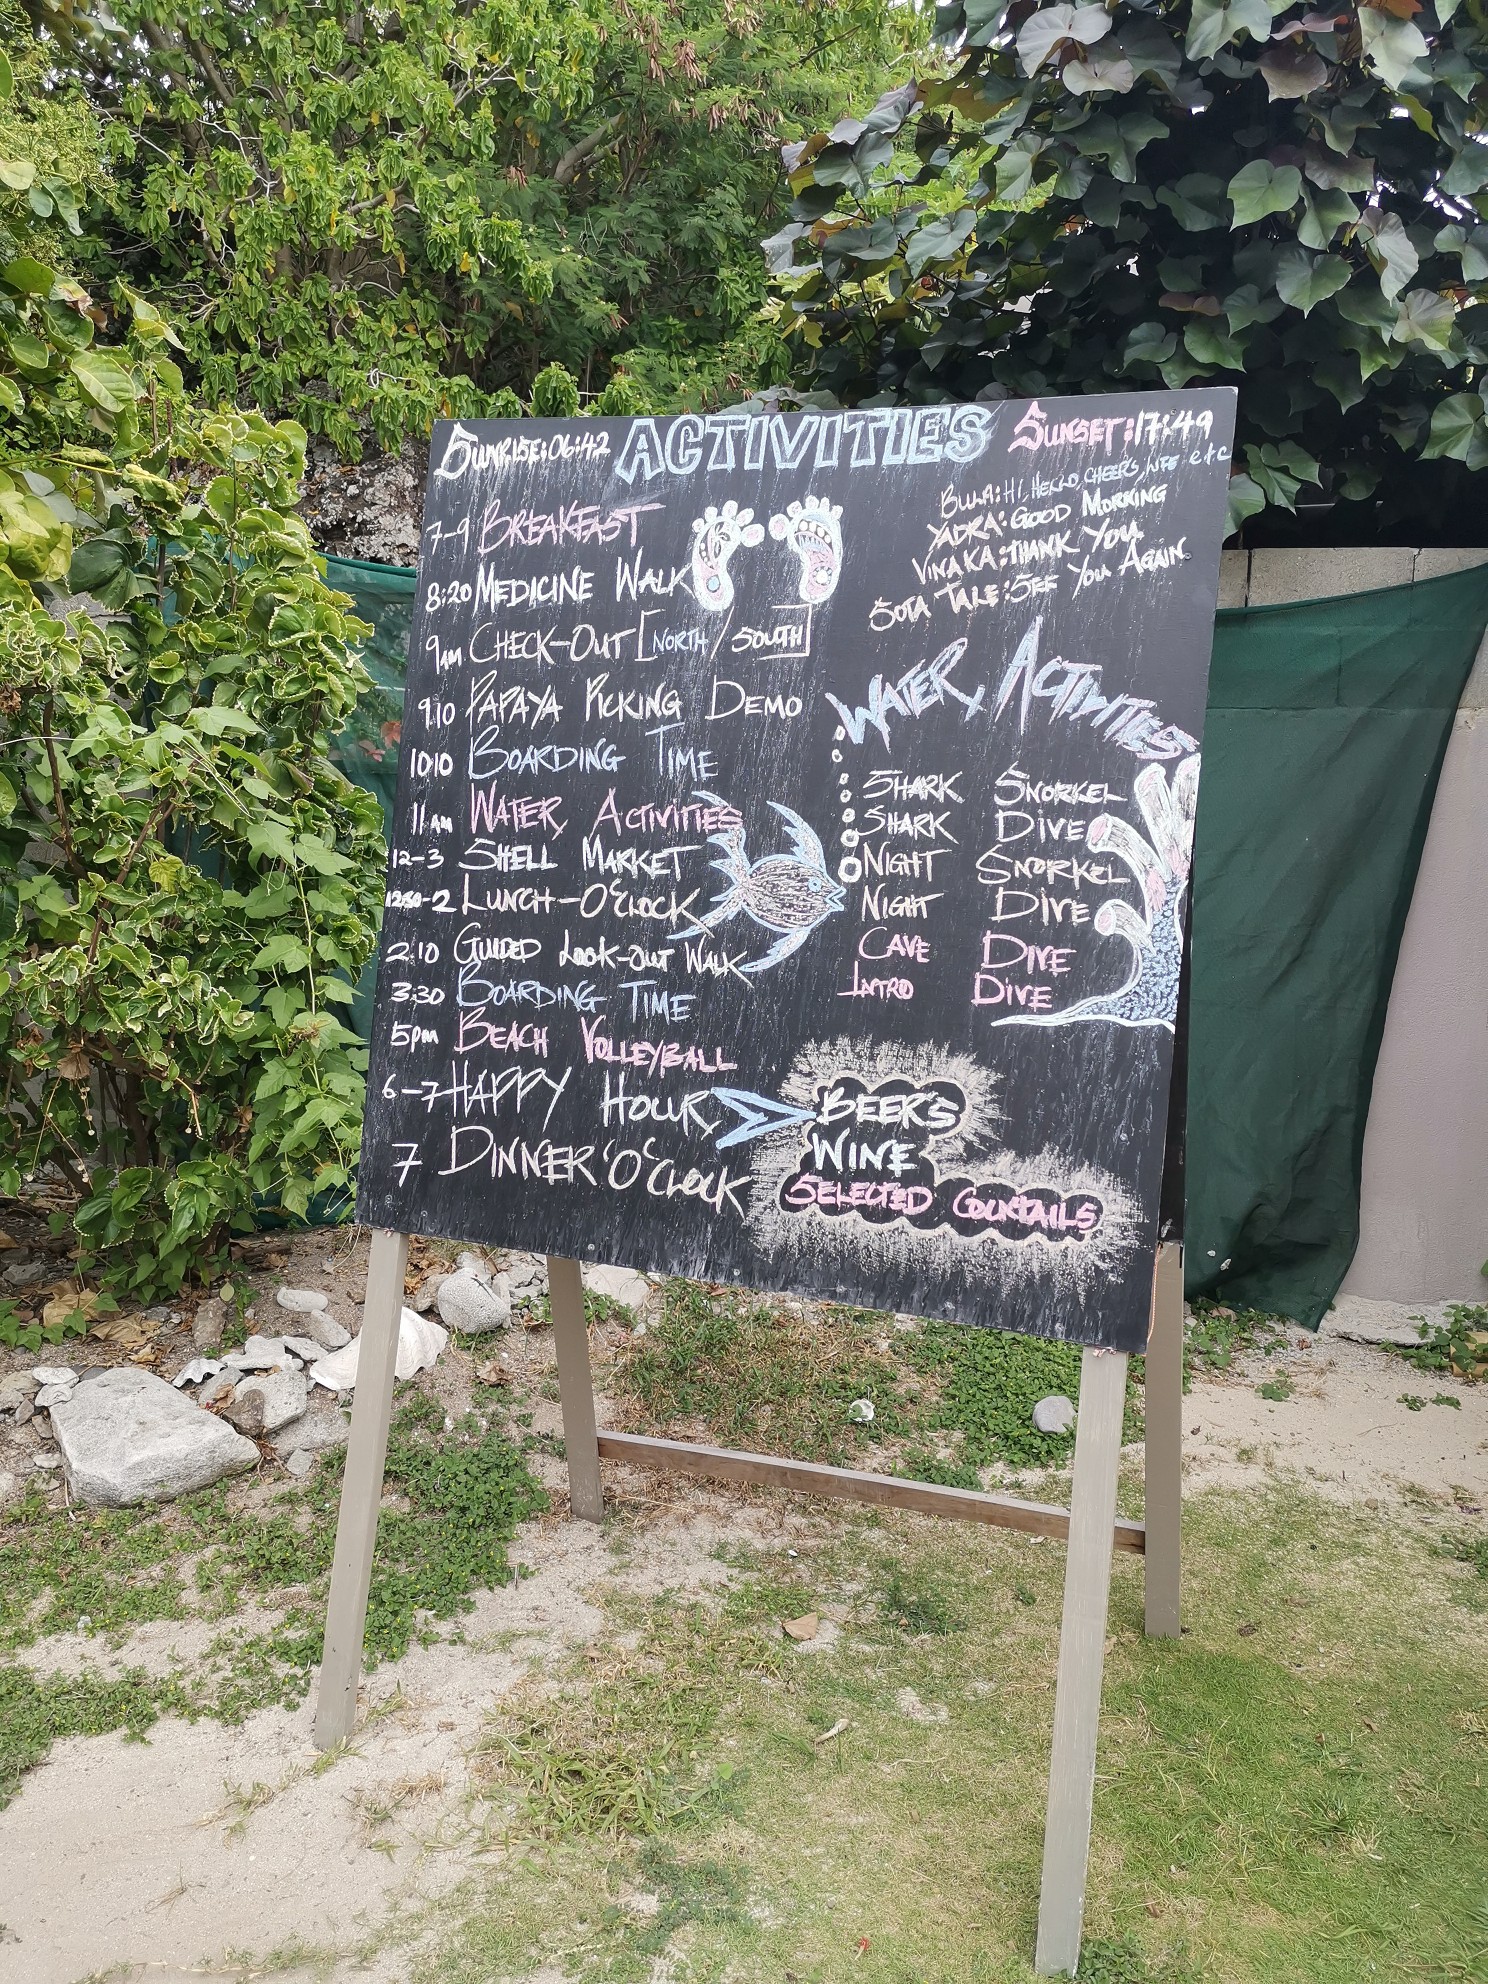 SUNRISE:06:42 ACTIVITIES SUNSET:17:49
7-9 BREAKFAST
8:20 MEDICINE WALK
9AM CHECK-OUT [NORTH/SOUTH]
9:10 PAPAYA PICKING DEMO
10:10 BOARDING TIME
11AM WATER ACTIVITIES
12-3 SHELL MARKET
12:30-2 LUNCH-O'CLOCK
2:10 GUIDED LOOK-OUT WALK
3:30 BOARDING TIME
5PM BEACH VOLLEYBALL
6-7 HAPPY HOUR
7 DINNER'O'CLOCK
BULA: HI, HELLO, CHEERS, LIFE etc
YADRA: GOOD MORNING
VINAKA: THANK YOU
SOTA TALE: SEE YOU AGAIN
WATER ACTIVITIES
SHARK SNORKEL
SHARK DIVE
NIGHT SNORKEL
NIGHT DIVE
CAVE DIVE
INTRO DIVE
BEER'S
WINE
SELECTED COCKTAILS